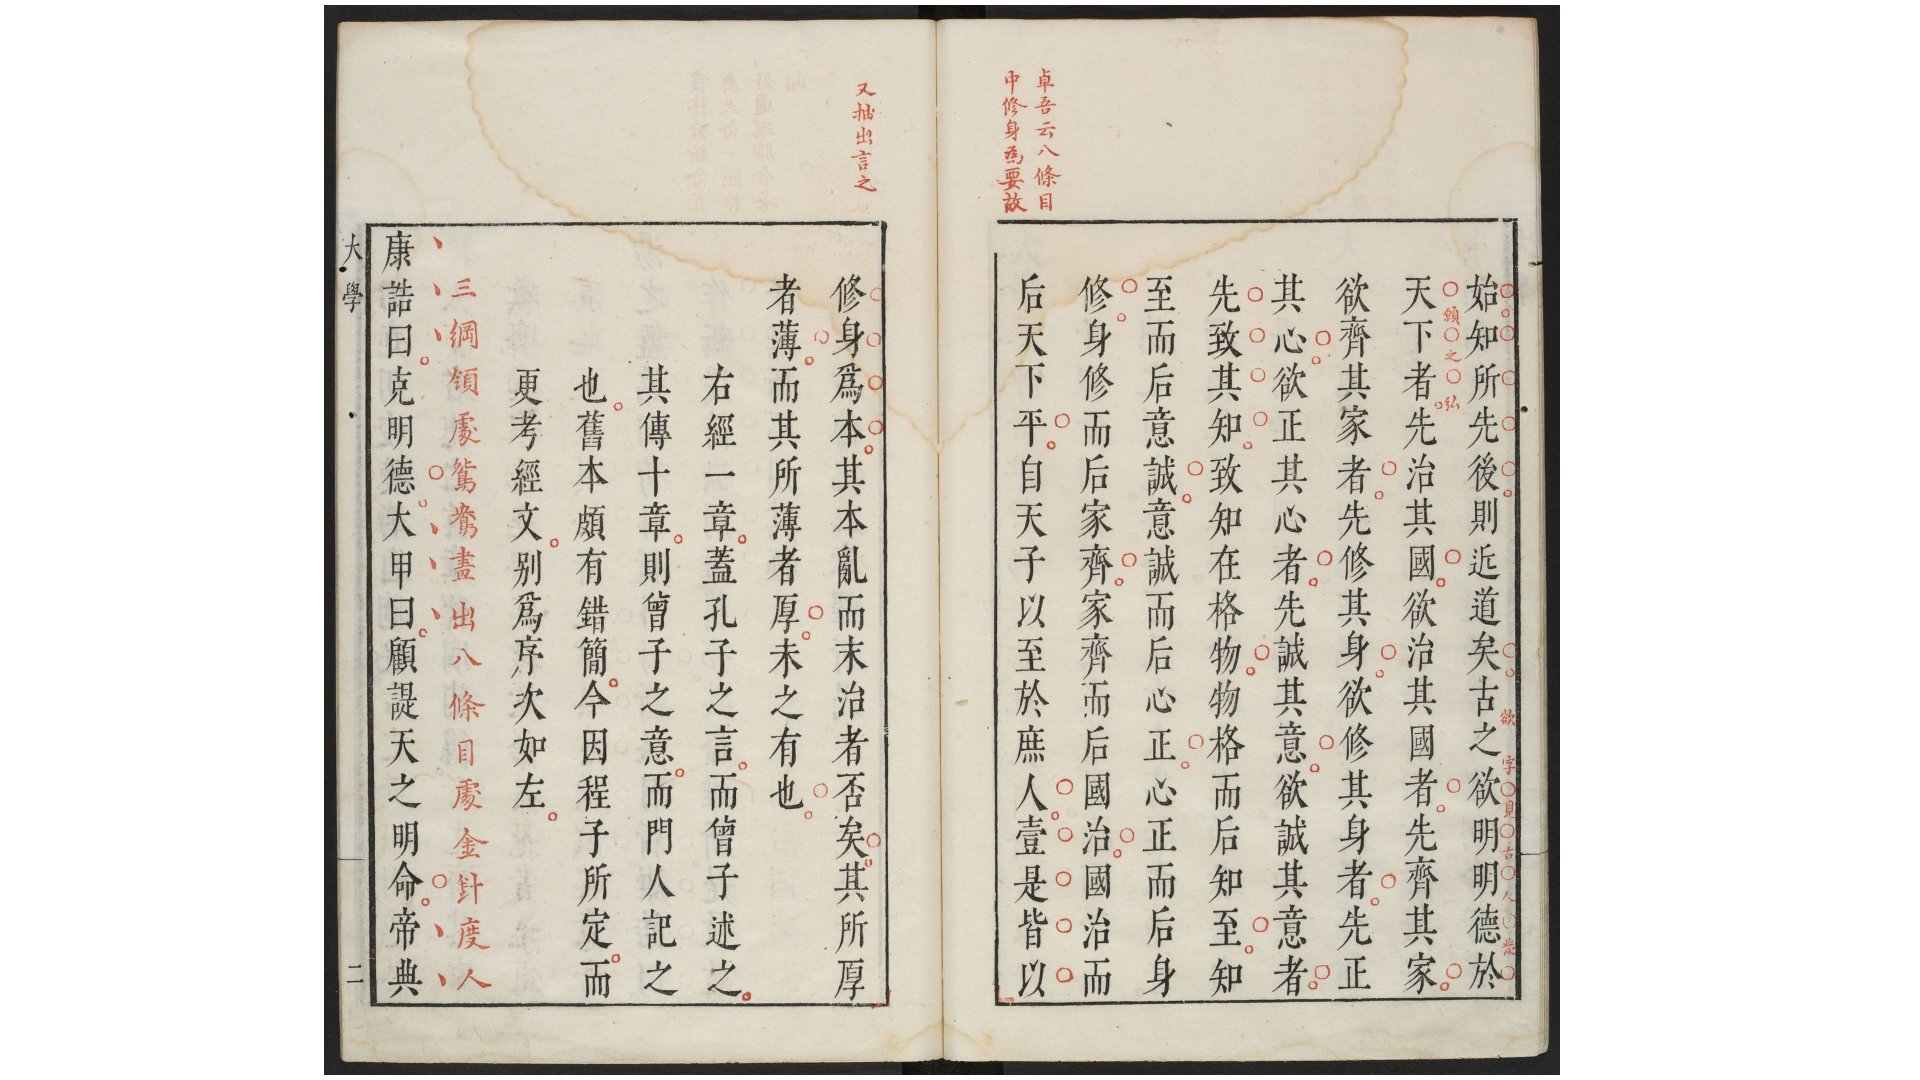 卓吾云八條目
中修身為要故
欲字見古人發
始知所先後則近道矣古之欲明明德於
願之弘
天下者先治其國欲治其國者先齊其家
欲齊其家者先修其身欲修其身者先正
其心欲正其心者先誠其意欲誠其意者
先致其知致知在格物物格而后知至知
至而后意誠意誠而后心正心正而后身
修身修而后家齊家齊而后國治國治而
后天下平自天子以至於庶人壹是皆以
又抽出言之
修身爲本其本亂而末治者否矣其所厚
者薄而其所薄者厚未之有也
右經一章蓋孔子之言而曾子述之
其傳十章則曾子之意而門人記之
也舊本頗有錯簡今因程子所定而
更考經文別爲序次如左
三綱領處鴛鴦盡出八條目處金針度人
康誥曰克明德大甲曰顧諟天之明命帝典
大學 二